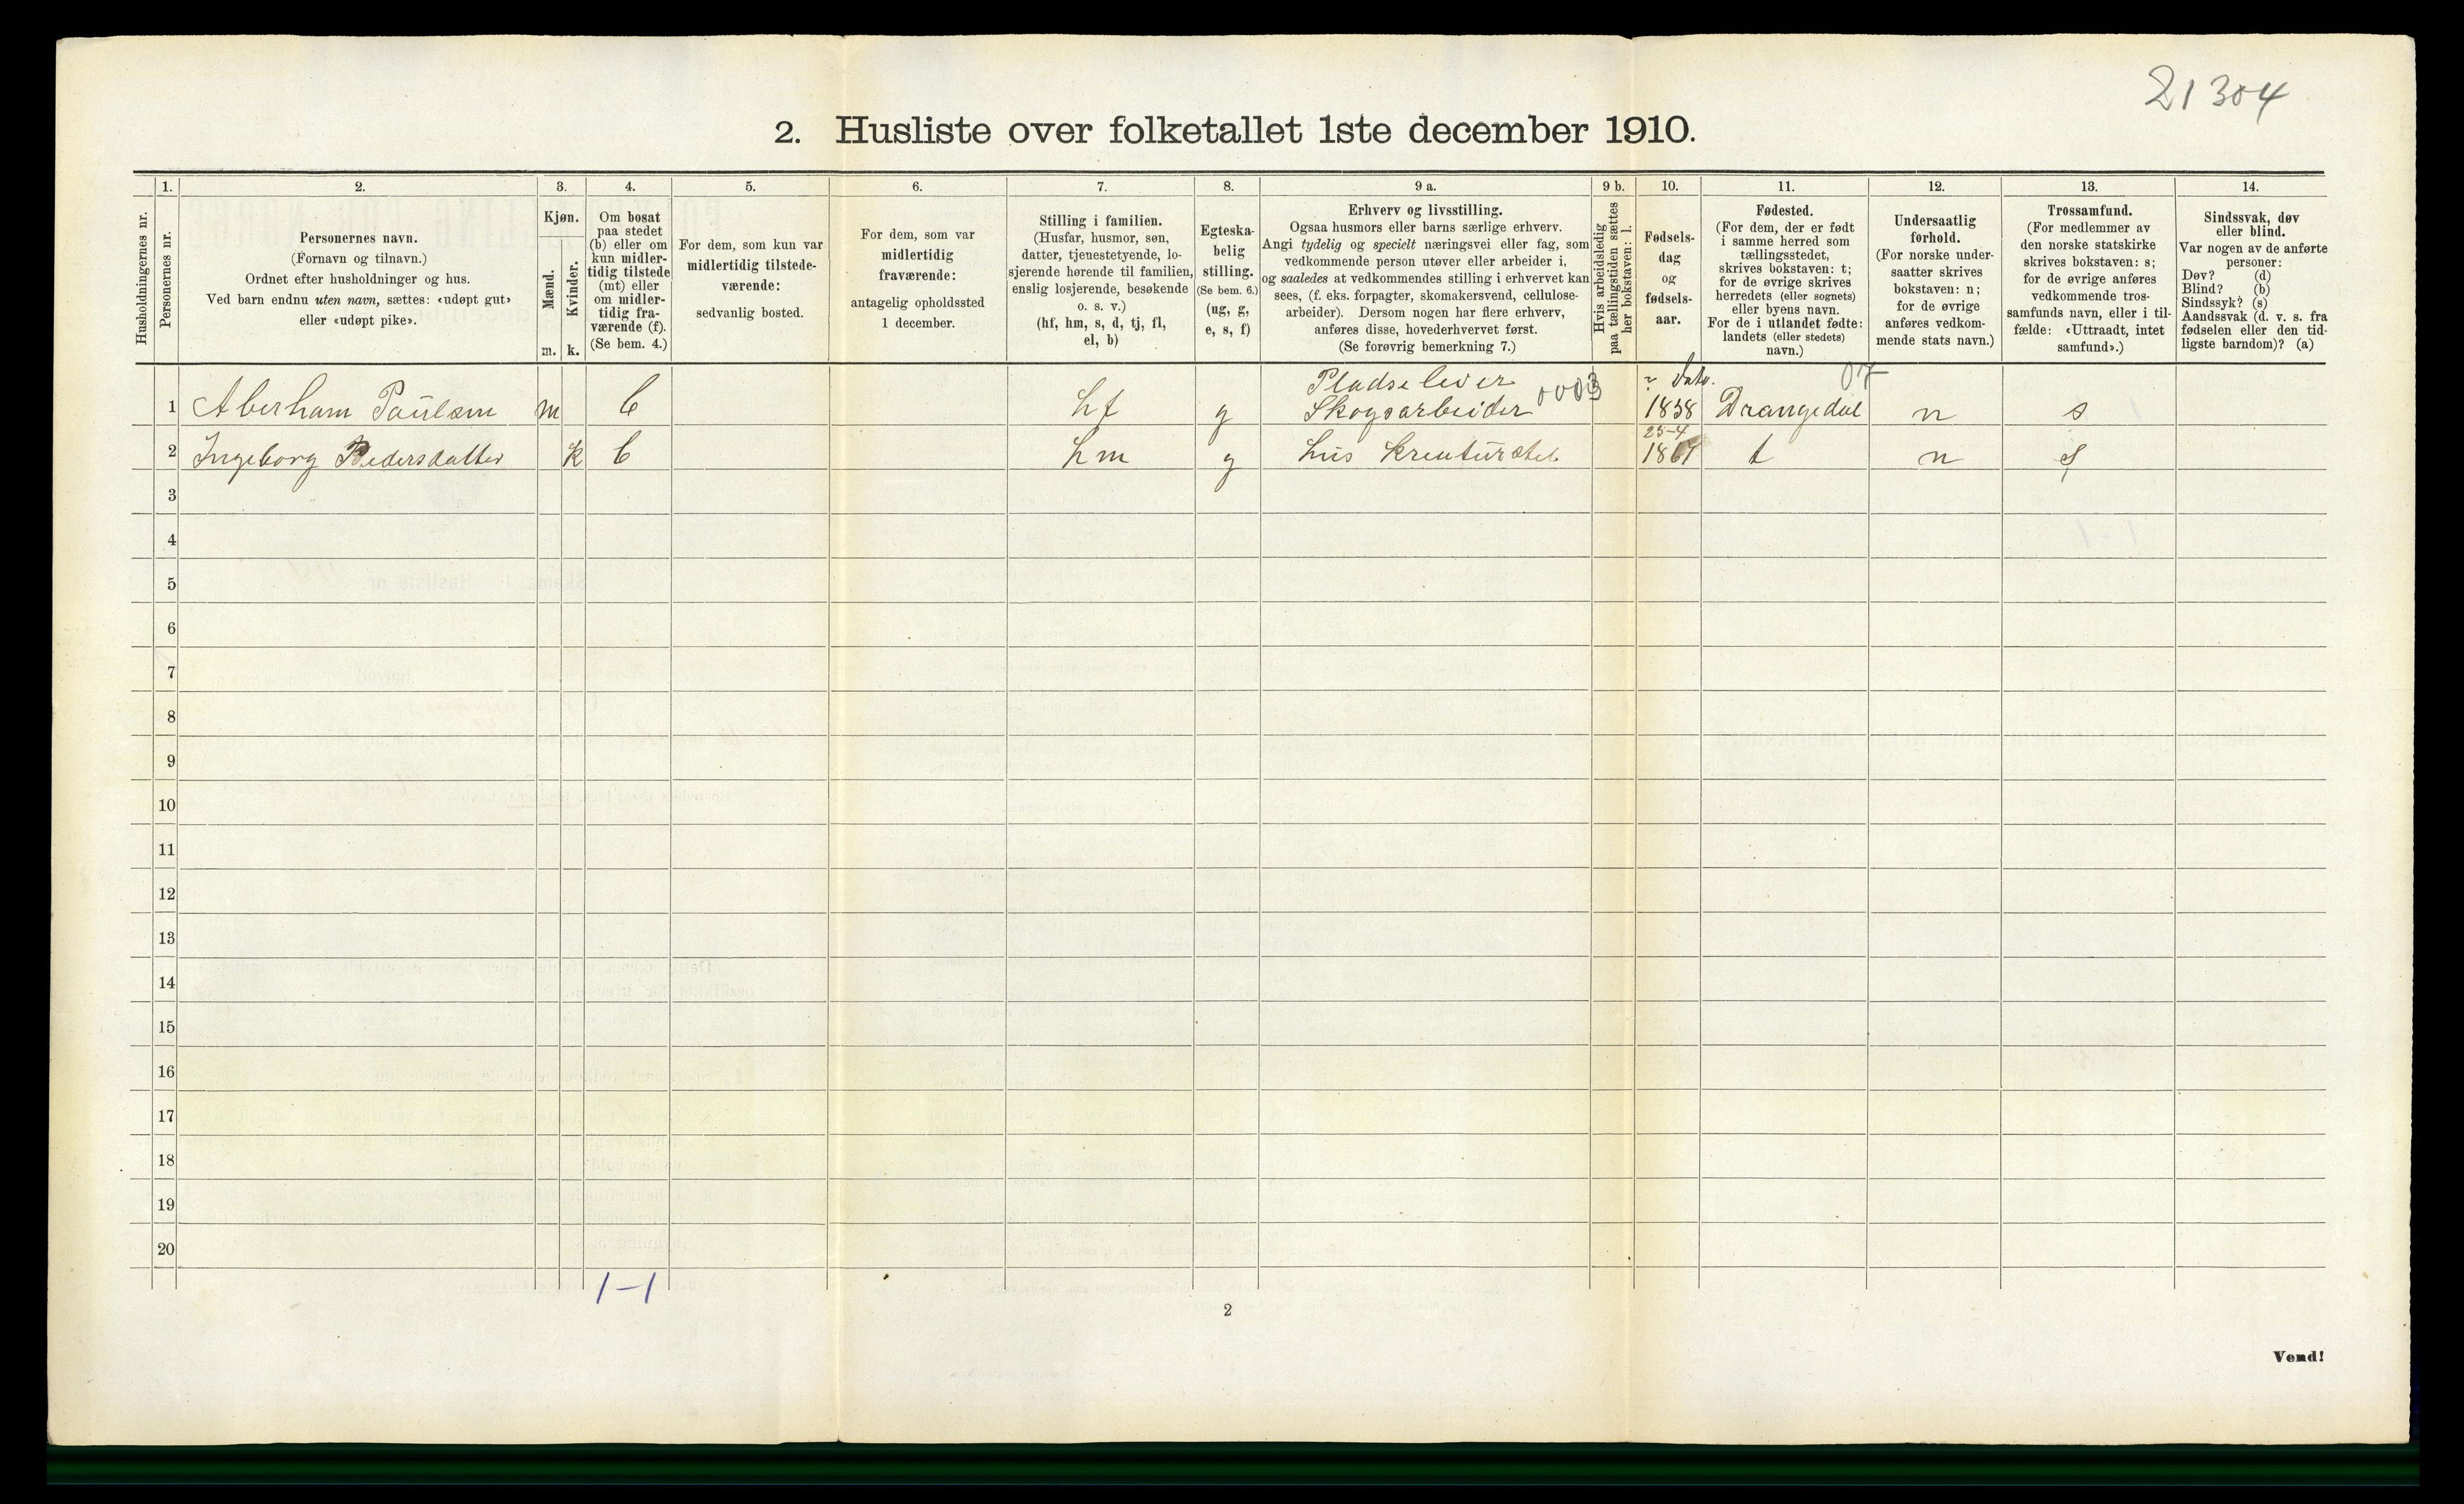 21304
2. Husliste over folketallet 1ste december 1910.
1. 2. 3. 4. 5. 6. 7. 8. 9 a. 9 b. 10. 11. 12. 13. 14.
Husholdningernes nr.
Personernes nr.
Personernes navn.
(Fornavn og tilnavn.)
Ordnet efter husholdninger og hus.
Ved barn endnu uten navn, sættes: «udøpt gut»
eller «udøpt pike».
Kjøn.
Mænd.
Kvinder.
m. k.
Om bosat
paa stedet
(b) eller om
kun midler-
tidig tilstede
(mt) eller
om midler-
tidig fra-
værende (f).
(Se bem. 4.)
For dem, som kun var
midlertidig tilstede-
værende:
sedvanlig bosted.
For dem, som var
midlertidig
fraværende:
antagelig opholdssted
1 december.
Stilling i familien.
(Husfar, husmor, søn,
datter, tjenestetyende, lo-
sjerende hørende til familien,
enslig losjerende, besøkende
o. s. v.)
(hf, hm, s, d, tj, fl,
el, b)
Egteska-
belig
stilling.
(Se bem. 6.)
(ug, g,
e, s, f)
Erhverv og livsstilling.
Ogsaa husmors eller barns særlige erhverv.
Angi tydelig og specielt næringsvei eller fag, som
vedkommende person utøver eller arbeider i,
og saaledes at vedkommendes stilling i erhvervet kan
sees, (f. eks. forpagter, skomakersvend, cellulose-
arbeider). Dersom nogen har flere erhverv,
anføres disse, hovederhvervet først.
(Se forøvrig bemerkning 7.)
Hvis arbeidsledig
paa tællingstiden sættes
her bokstaven: l.
Fødsels-
dag
og
fødsels-
aar.
Fødested.
(For dem, der er født
i samme herred som
tællingsstedet,
skrives bokstaven: t;
for de øvrige skrives
herredets (eller sognets)
eller byens navn.
For de i utlandet fødte:
landets (eller stedets)
navn.)
Undersaatlig
forhold.
(For norske under-
saatter skrives
bokstaven: n;
for de øvrige
anføres vedkom-
mende stats navn.)
Trossamfund.
(For medlemmer av
den norske statskirke
skrives bokstaven: s;
for de øvrige anføres
vedkommende tros-
samfunds navn, eller i til-
fælde: «Uttraadt, intet
samfund».)
Sindssvak, døv
eller blind.
Var nogen av de anførte
personer:
Døv? (d)
Blind? (b)
Sindssyk? (s)
Aandssvak (d. v. s. fra
fødselen eller den tid-
ligste barndom)? (a)
Pladselever 0003
1 Aberham Paulsen m b hf g Skogsarbeider 1838 Drangedal n s
25-4
2 Ingeborg Pedersdatter k b hm g hus Kreaturstel t n s
3
4
5
6
7
8
9
10
11
12
13
14
15
16
17
18
19
20
1-1
2
Vend!